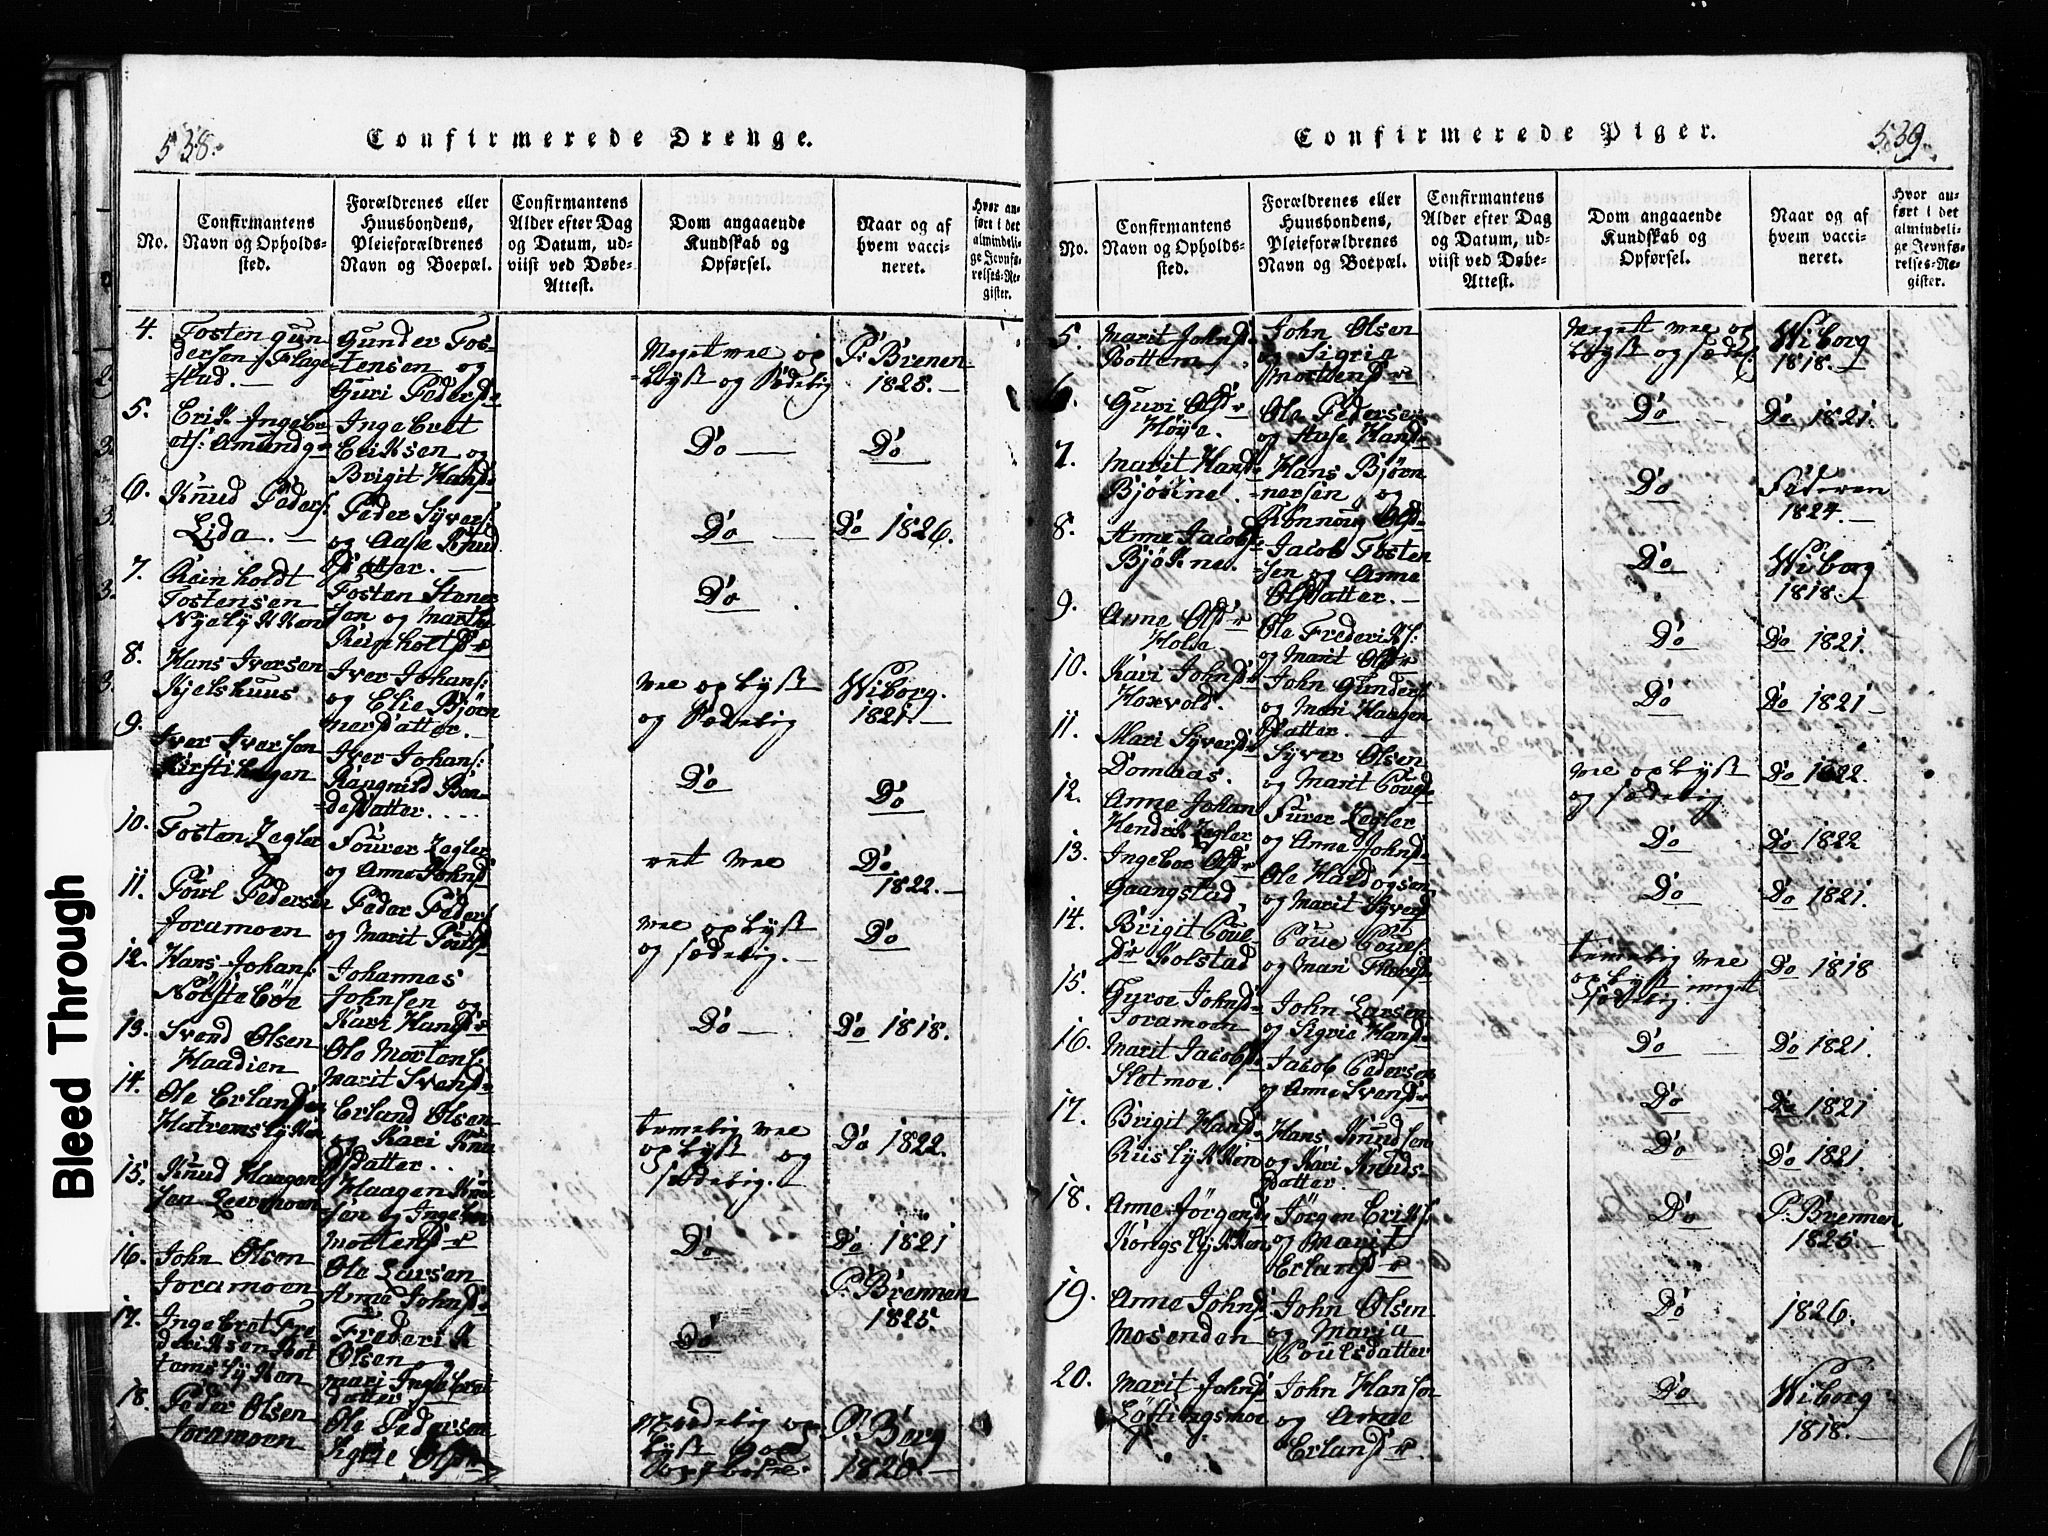 538.
Confirmerede Drenge.
No.
Confirmantens
Navn og Opholds-
sted.
Forældrenes eller
Huusbondens,
Pleieforældrenes
Navn og Boepæl.
Confirmantens
Alder efter Dag
og Datum, ud-
viist ved Døbe-
Attest.
Dom angaaende
Kundskab og
Opførsel.
Naar og af
hvem vacci-
neret.
Hvor an-
ført i det
almindeli-
ge Jevnfø-
relses-Re-
gister.
4.
Tosten Gun
dersen Flage-
stud.
Gunder Tos-
tensen og
Guri Peders
Meget vel op
lyst og Sædelig
P: Brenen
1825.
5.
Erik Ingebr
ets: Amundg
Ingebret
Eriksen og
Brigit Hans
Do
Do
6.
Knud Peders
Lida.
Peder Syvers
og Aase Knud
Datter.
Do
Do 1826.
7.
Reinholdt
Tostensen
Nyelykken
Tosten Stener
sen og Marthe
Reinholts
Do
8.
Hans Iversen
Kjelshuus
Iver Johans:
og Elie Bjør
nersdatter.
vel oplyst
og Sædelig
Wiborg.
1821.
9.
Iver Iversen
Kirstihagen
Iver Johans:
Rangnild
datter....
Do
Do
10.
Tosten Zegler
Zegler
og Anne Johnsd
ret vel
Do
1822.
11.
Poul Pedersen
Joramoen
Peder Peders
og Marit Pouls
vel oplyst
og sædelig.
Do
12.
Hans Johans:
Nørsteböe
Johannes
Johnsen og
Kari Hans
Do
Do 1818.
13.
Svend Olsen
Haadien
Ole Mortens:
Marit Svends
14.
Ole Erlands
Erland Olsen
og Kari Knu
datter..
temelig vel
oplyst og
sædelig.
Do 1822.
15.
Knud Haagen
sen
Haagen Knu
sen og Ingebor
Mortens
Do
Do 1821
16.
John Olsen
Joramoen
Ole Larsen
Anne Johns
P: Brennen
1825.
17.
Ingebret Fre
deriksen Bot
temslykken
Frederik
Olsen og
Mari Ingebret
datter
Do
18.
Peder Olsen
Joramoen
Ole Pedersen
Sigrie Ols
lyst god
P: Berg
539.
Confirmerede Piger.
No.
Confirmantens
Navn og Opholds-
sted.
Forældrenes eller
Huusbondens,
Pleieforældrenes
Navn og Boepæl.
Confirmantens
Alder efter Dag
og Datum, ud-
viist ved Døbe-
Attest.
Dom angaaende
Kundskab og
Opførsel.
Naar og af
hvem vacci-
neret.
Hvor an-
ført i det
almindeli-
ge Jevnfø-
relses-Re-
gister.
5.
Marit Johnsd
Bottem
John Olsen
og Sigrid
Mortens
Meget vel op
lyst og sædel
Wiborg
1818.
6.
Guri Olsd
Høye.
Ole Pedersen
og Aase Hans
Do
Do 1821.
7.
Marit Hans
Bjökne.
Hans Bjørn
nersen og
Rönnoug Ols
Do
Federen
1824.
8.
Anne Jacobs
Bjökne.
Jacob Tosten
sen og Anne
Olsdatter.
Do
Wiborg
1818.
9.
Anne Olsd
Holde
Ole Frederiks:
og Marit Ols
Do
Do 1821.
10.
Kari Johnsd
Hoxvold.
John Gunders
og Mari Haagen
Datter.
Do
Do 1821
11.
Mari Syversd
Domaas.
Syver Olsen
og Marit Pouls
vel oplyst
og sædelig
Do 1822.
12.
Anne Johan
Hendrik Zegler
Zegler
og Anne Johns
Do
Do 1822
13.
Ingebor Olsd
Gaangstad
Ole Haldogsen
og Marit Syvers
Do
Do 1821.
14.
Brigit Poul
dr Kolstad
Poul Pouls:
og Mari
temelig vel
oplyst meget
sædelig.
Do 1818
15.
Gyroe Johns
Joramoen
John Larsen
og Sigrie Hans
Do
Do 1821.
16.
Marit Jacobs
Sletmoe.
Jacob Pedersen
og Anne Svends
Do
Do 1821
17.
Brigit Hans
Ruslykken
Hans Knudsen
og Kari Knuds-
datter.
Do
Do 1821.
18.
Anne Jörgens
Kongslykken
Jörgen Eriks:
og Marit
Erlands
Do
P: Brennen
1825.
19.
Anne Johns
Mosenden
John Olsen
og Maria
Poulsdatter
Do
1826.
20.
Marit Johns
Löftingsmoe
John Hansen
og Anne
Erlands
Do
Wiborg
1818.
Bleed Through